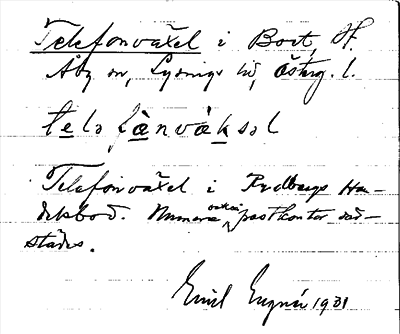 Telefonväxel i Bort, H.
Åby sn, Lysings hd, Österg. l.
telefånväksel
Telefonväxel i Rydbergs Han-
delsbod. Numera också postkontor där-
städes.
Emil 1931